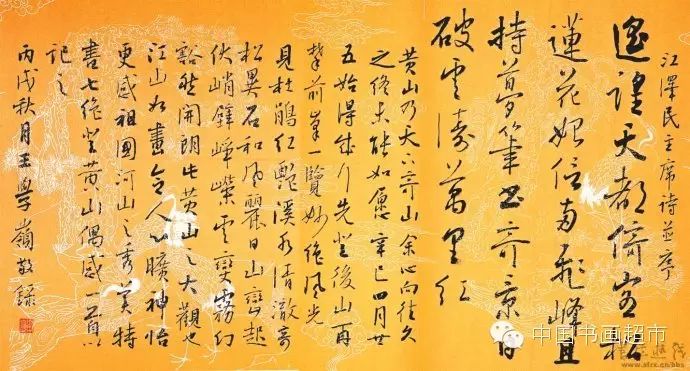 江澤民主席詩並序
遥望天都倚客松
蓮花始信兩飛峰且
持夢筆書奇景日
破雲濤萬里红
黄山乃天下奇山余心向往久
之終未能如愿辛巳四月廿
五始得成行先登後山再
攀前崖一覽妙絶風光
見杜鵑红艷溪水清澈奇
松異石和風麗日山巒起
伏峭壁崢嶸雲變霧幻
豁然開朗此黄山之大觀也
江山如畫令人心曠神怡
更感祖國河山之秀美特
書七絶登黄山偶感一首以
記之
丙戌秋月王學嶺敬録
中国书画超市